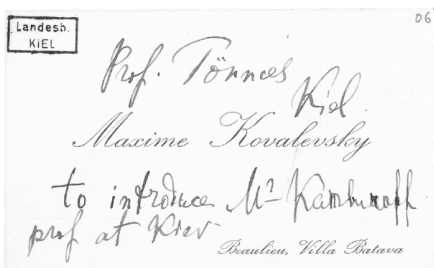 06
Landesb.
KIEL
Prof. Tönnies
Kiel.
Maxime Kovalevsky
to introduce Mr
prof at Kiev
Beaulieu, Villa Batava